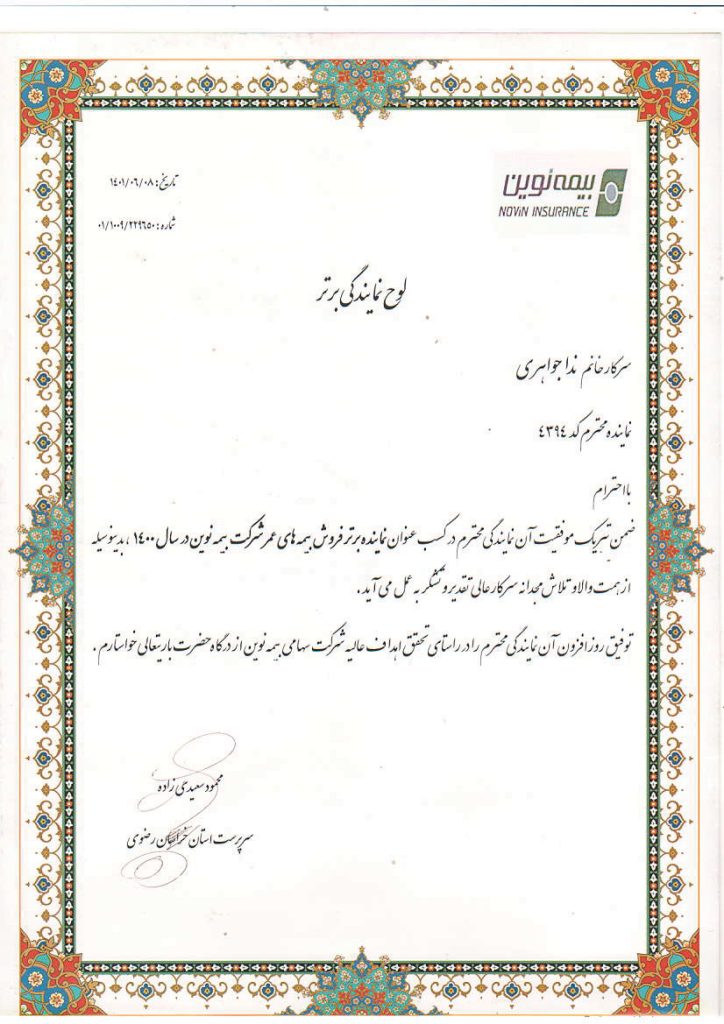 بیمه نوین
NOVIN INSURANCE
تاریخ: ۱٤۰۱/۰٦/۰۸
شماره: ۰۱/۱۰۰۹/۲۲۹٦٥۰
لوح نمایندگی برتر
سرکار خانم ندا جواهری
نماینده محترم کد ٤۳۹٤
با احترام
ضمن تبریک موفقیت آن نمایندگی محترم در کسب عنوان نماینده برتر فروش بیمه های عمر شرکت بیمه نوین در سال ۱٤۰۰ ، بدینوسیله
از همت والا و تلاش مجدانه سرکار عالی تقدیر و تشکر به عمل می آید.
توفیق روز افزون آن نمایندگی محترم را در راستای تحقق اهداف عالیه شرکت سهامی بیمه نوین از درگاه حضرت باریتعالی خواستارم .
محمود سعیدی زاده
سرپرست استان خراسان رضوی